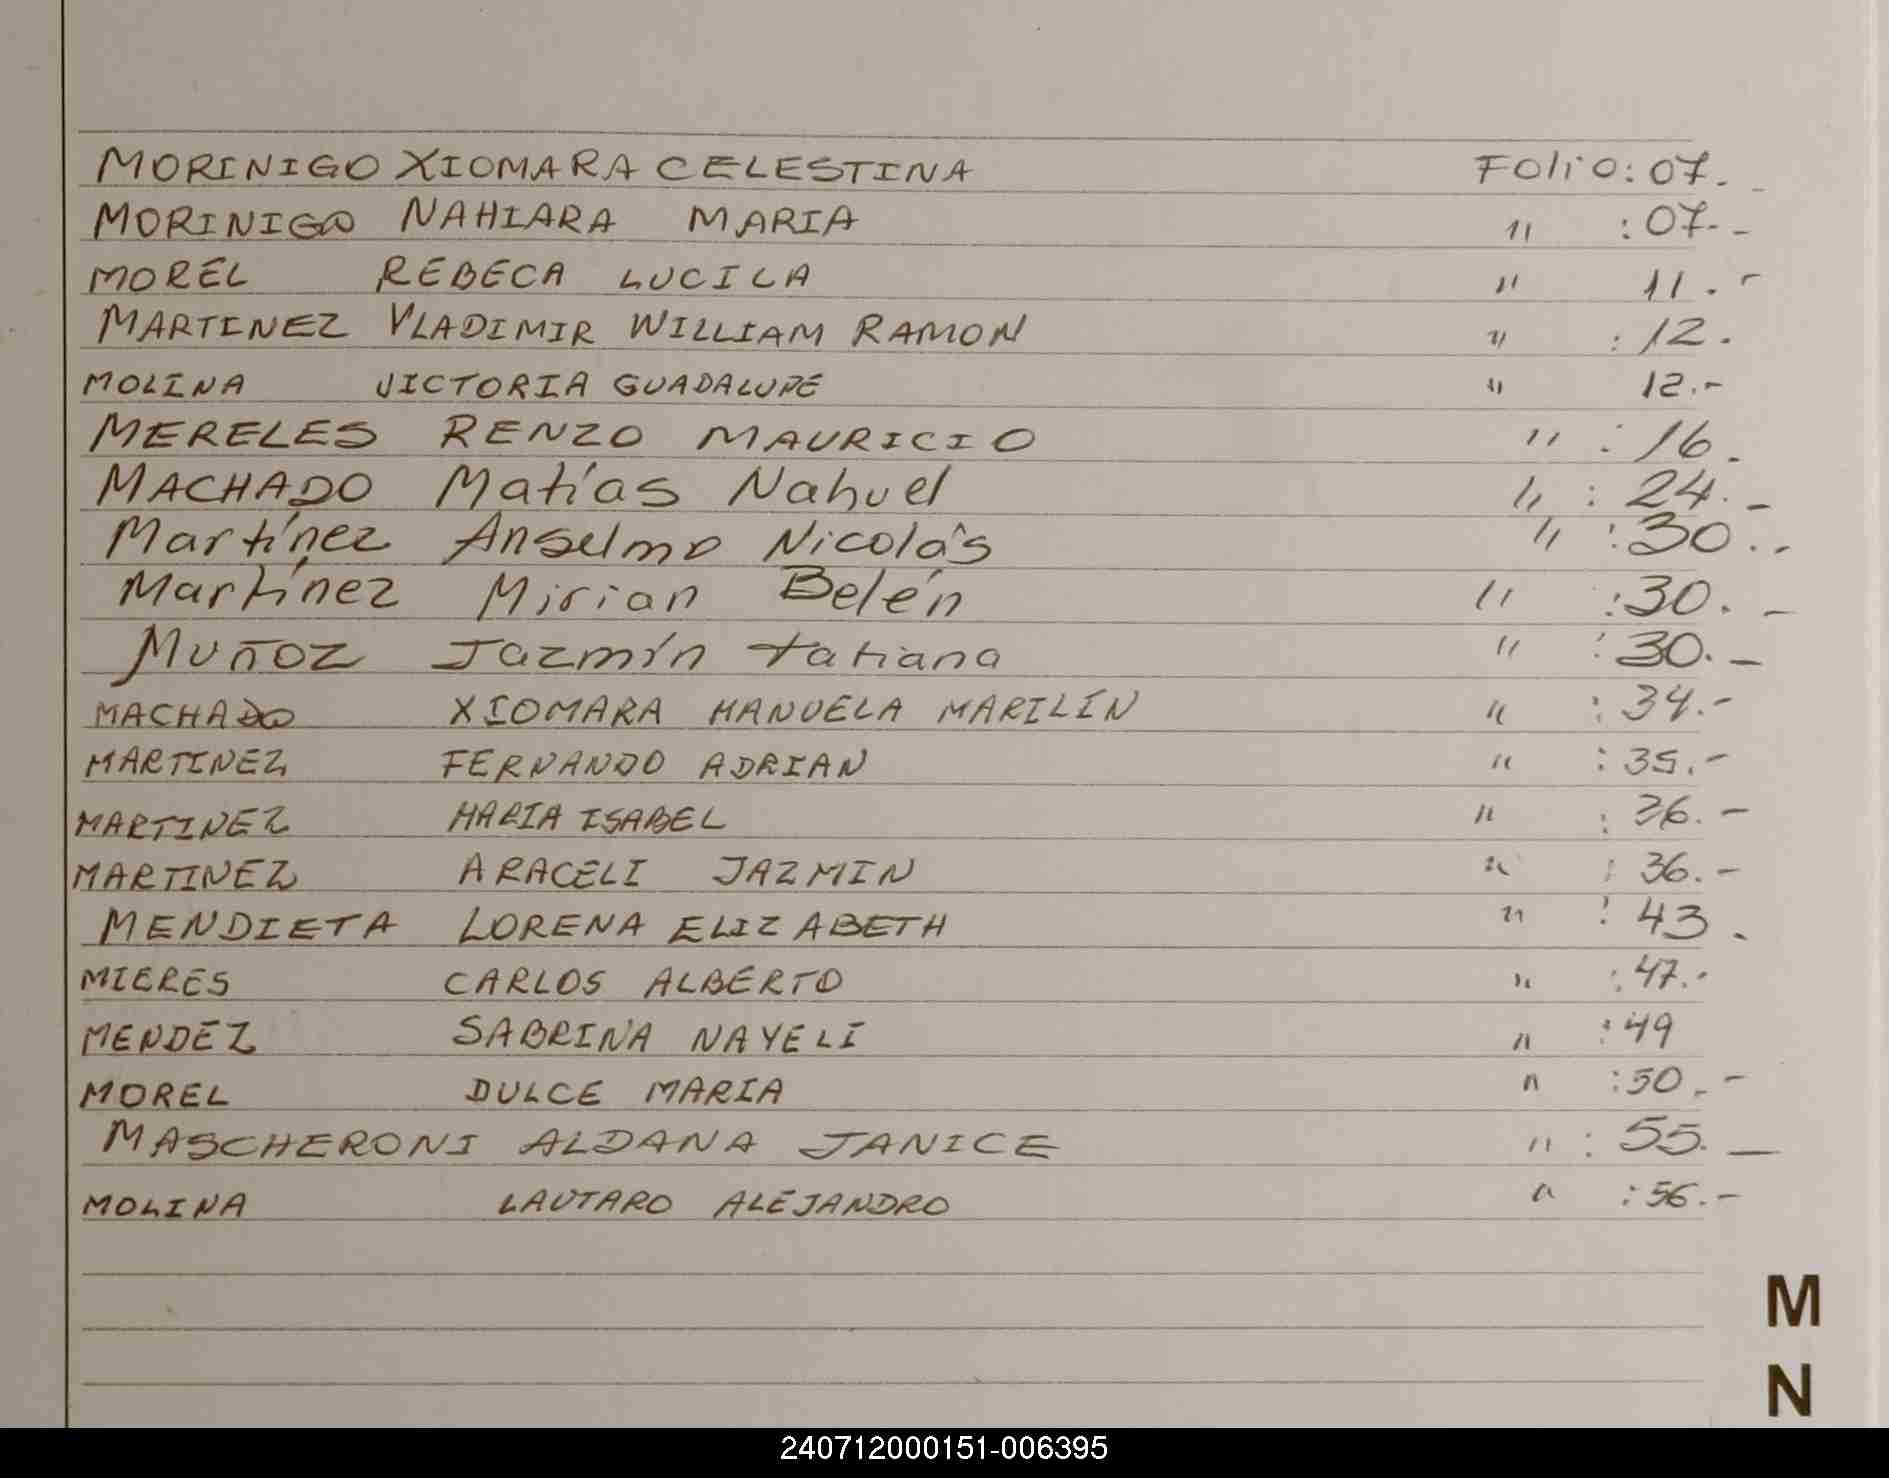 MORINIGO XIOMARA CELESTINA Folio: 07.-
MORINIGO NAHIARA MARIA " : 07.-
MOREL REBECA LUCILA " 11.-
MARTINEZ VLADIMIR WILLIAM RAMON " : 12.
MOLINA VICTORIA GUADALUPE " 12.-
MERELES RENZO MAURICIO " : 16.
MACHADO Matías Nahuel " : 24.-
Martínez Anselmo Nicolás " : 30.-
Martínez Mirian Belén " : 30.-
MUÑOZ Jazmín tatiana " : 30.-
MACHADO XIOMARA MANUELA MARILÍN " : 34.-
MARTINEZ FERNANDO ADRIAN " : 35.-
MARTINEZ MARIA ISABEL " : 36.-
MARTINEZ ARACELI JAZMIN " : 36.-
MENDIETA LORENA ELIZABETH " : 43.
MIERES CARLOS ALBERTO " : 47.-
MENDEZ SABRINA NAYELI " : 49
MOREL DULCE MARIA " : 50.-
MASCHERONI ALDANA JANICE " : 55.-
MOLINA LAUTARO ALEJANDRO " : 56.-
M
N
240712000151-006395